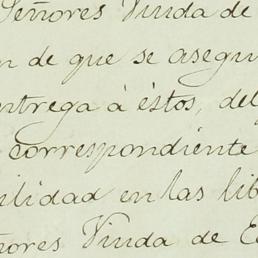 Señores Viuda de
n de que se asegu
ntrega á éstos, del
correspondiente
ilidad en las lib
ñores Viuda de E